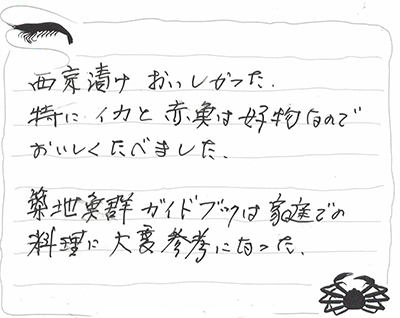 西京漬け おいしかった.
特に イカと 赤魚は 好物なので
おいしくたべました.
築地魚群 ガイドブックは 家庭での
料理に 大変 参考になった.